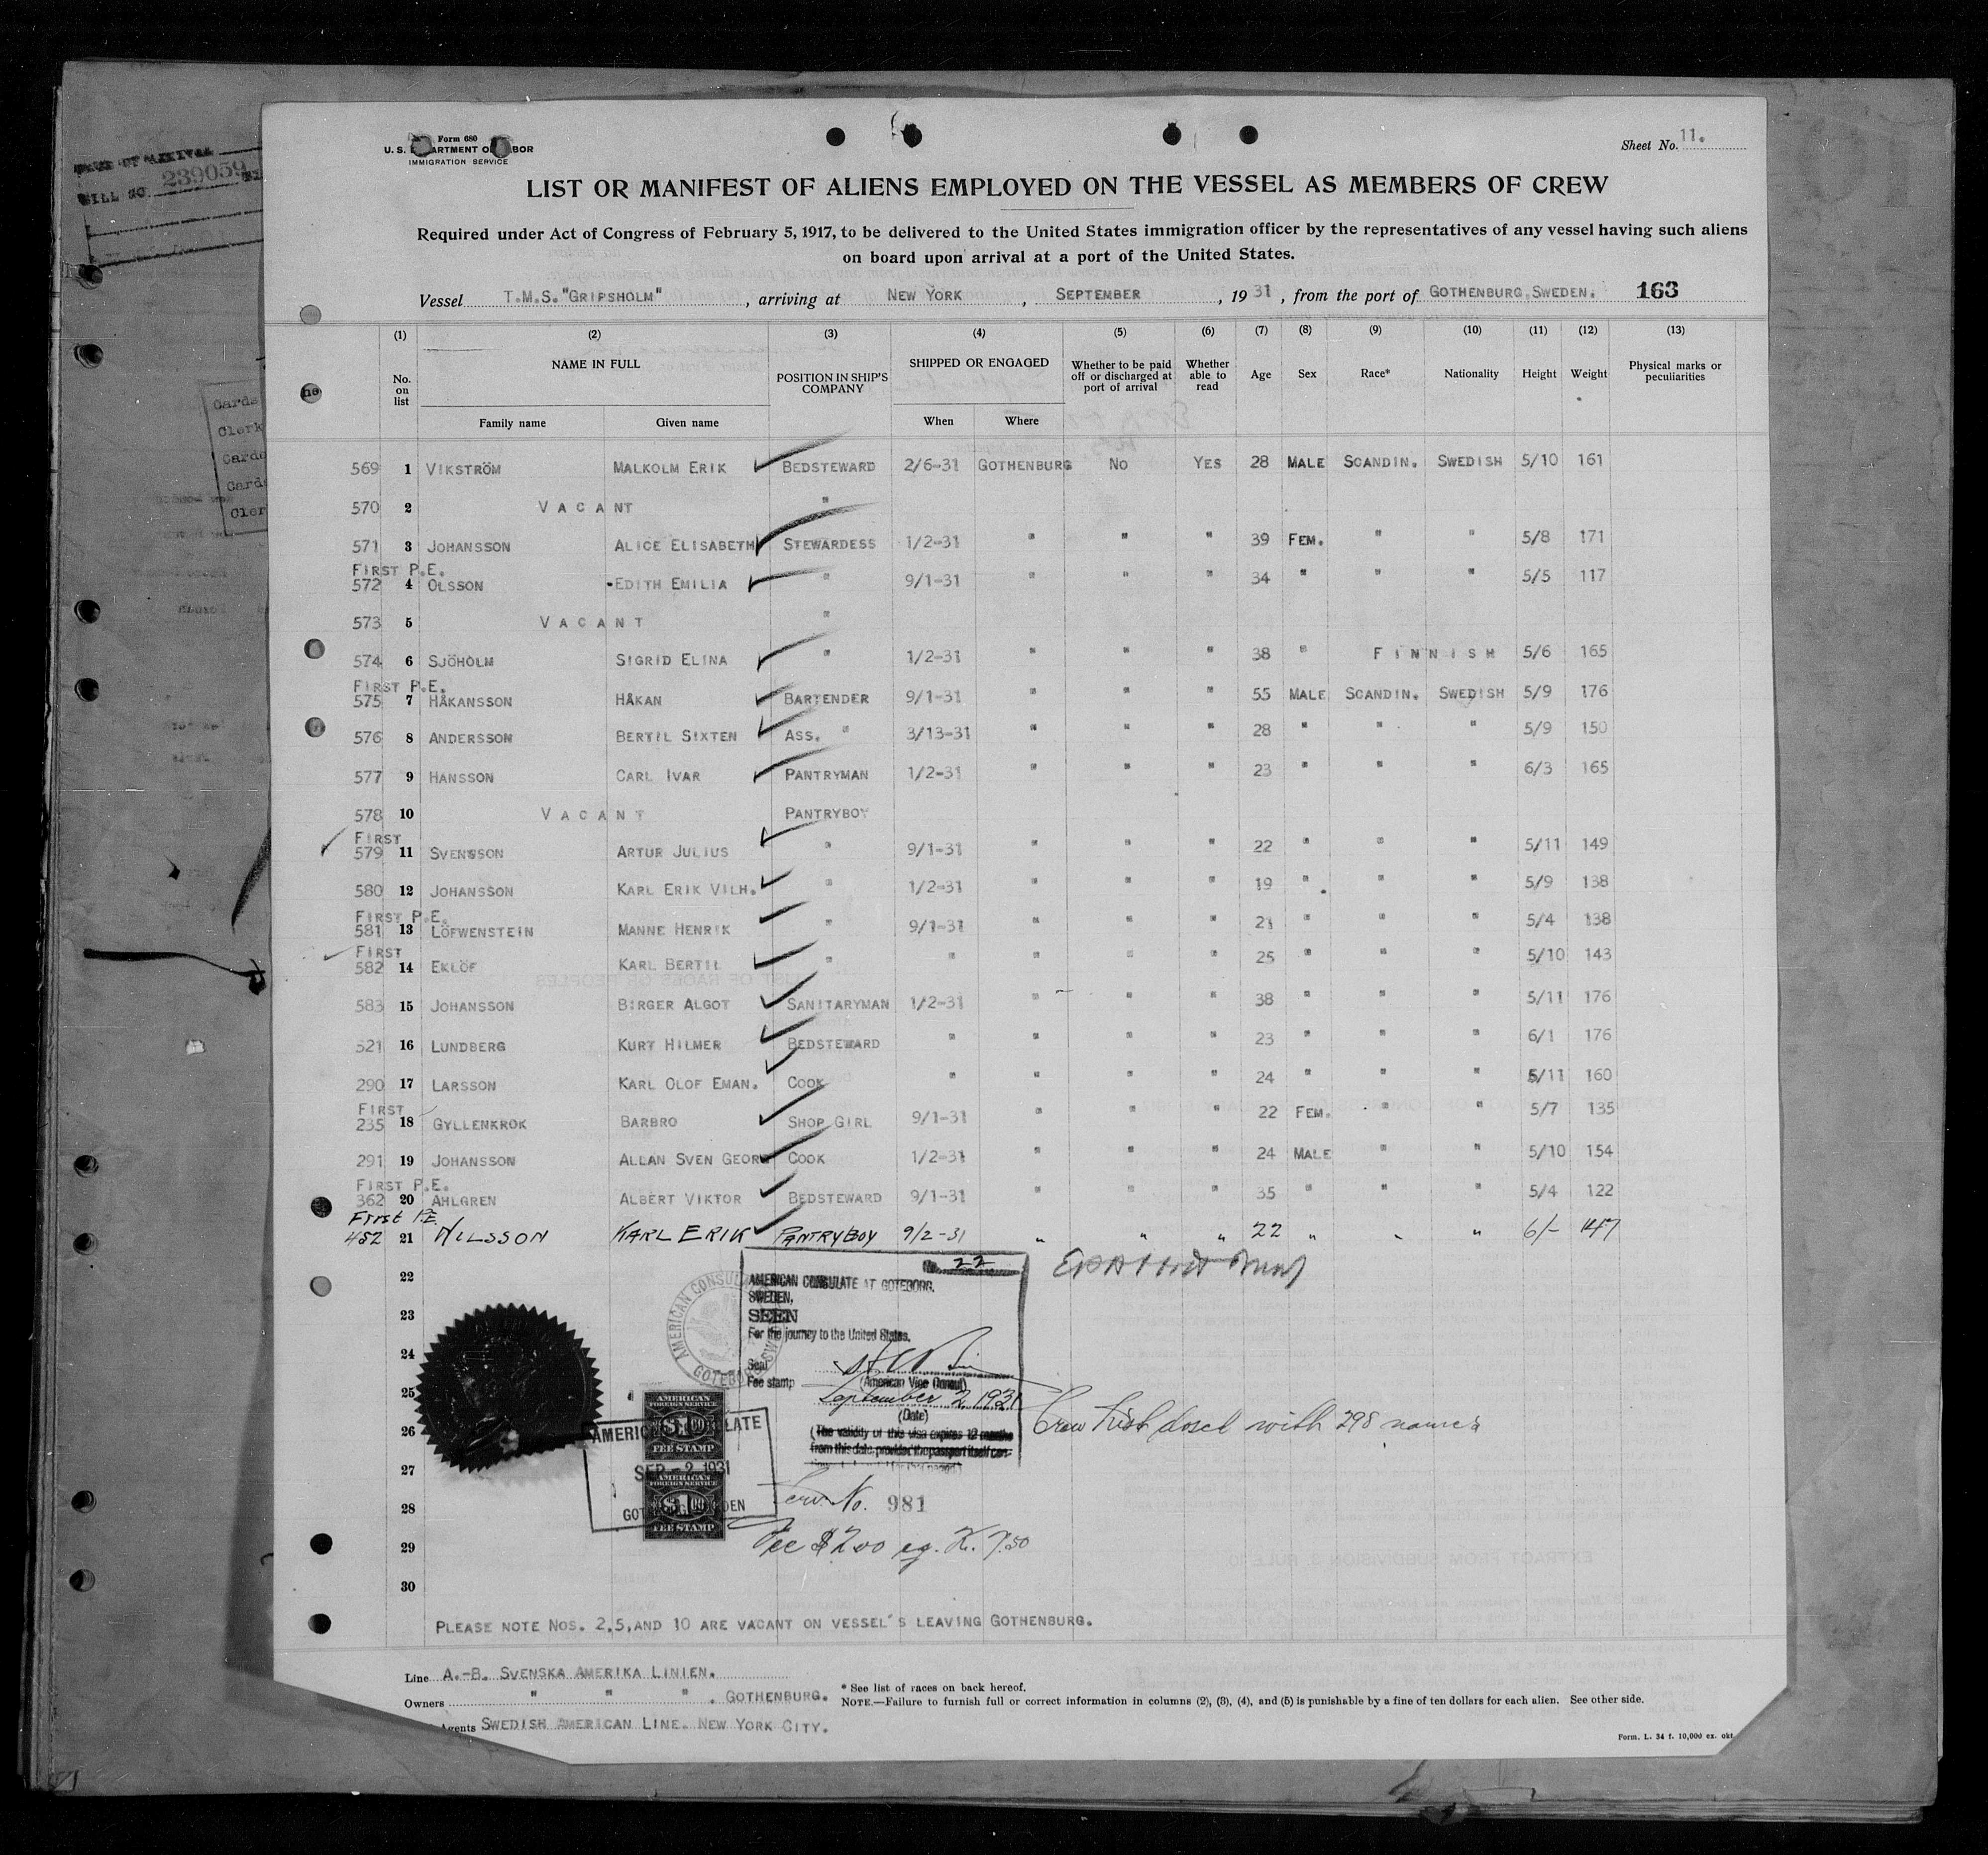 Form 680
U. S. DEPARTMENT OF LABOR
IMMIGRATION SERVICE
Sheet No. 11.
LIST OR MANIFEST OF ALIENS EMPLOYED ON THE VESSEL AS MEMBERS OF CREW
Required under Act of Congress of February 5, 1917, to be delivered to the United States immigration officer by the representatives of any vessel having such aliens
on board upon arrival at a port of the United States.
Vessel T.M.S. "GRIPSHOLM" , arriving at NEW YORK , SEPTEMBER , 19 31 , from the port of GOTHENBURG, SWEDEN. 163
(1) (2) (3) (4) (5) (6) (7) (8) (9) (10) (11) (12) (13)
No. on list NAME IN FULL POSITION IN SHIP'S COMPANY SHIPPED OR ENGAGED Whether to be paid off or discharged at port of arrival Whether able to read Age Sex Race* Nationality Height Weight Physical marks or peculiarities
Family name Given name When Where
569 1 VIKSTRÖM MALKOLM ERIK BEDSTEWARD 2/6-31 GOTHENBURG NO YES 28 MALE SCANDIN. SWEDISH 5/10 161
570 2 VACANT "
571 3 JOHANSSON ALICE ELISABETH STEWARDESS 1/2-31 " " " 39 FEM. " " 5/8 171
FIRST P.E.
572 4 OLSSON EDITH EMILIA " 9/1-31 " " " 34 " " " 5/5 117
573 5 VACANT "
574 6 SJÖHOLM SIGRID ELINA " 1/2-31 " " " 38 " FINNISH 5/6 165
FIRST P.E.
575 7 HÅKANSSON HÅKAN BARTENDER 9/1-31 " " " 55 MALE SCANDIN. SWEDISH 5/9 176
576 8 ANDERSSON BERTIL SIXTEN ASS. " 3/13-31 " " " 28 " " " 5/9 150
577 9 HANSSON CARL IVAR PANTRYMAN 1/2-31 " " " 23 " " " 6/3 165
578 10 VACANT PANTRYBOY
FIRST
579 11 SVENSSON ARTUR JULIUS " 9/1-31 " " " 22 " " " 5/11 149
580 12 JOHANSSON KARL ERIK VILH. " 1/2-31 " " " 19 " " " 5/9 138
FIRST P.E.
581 13 LÖFWENSTEIN MANNE HENRIK " 9/1-31 " " " 21 " " " 5/4 138
FIRST
582 14 EKLÖF KARL BERTIL " " " " " 25 " " " 5/10 143
583 15 JOHANSSON BIRGER ALGOT SANITARYMAN 1/2-31 " " " 38 " " " 5/11 176
521 16 LUNDBERG KURT HILMER BEDSTEWARD " " " " 23 " " " 6/1 176
290 17 LARSSON KARL OLOF EMAN. COOK " " " " 24 " " " 5/11 160
FIRST
235 18 GYLLENKROK BARBRO SHOP GIRL 9/1-31 " " " 22 FEM. " " 5/7 135
291 19 JOHANSSON ALLAN SVEN GEORG COOK 1/2-31 " " " 24 MALE " " 5/10 154
FIRST P.E.
362 20 AHLGREN ALBERT VIKTOR BEDSTEWARD 9/1-31 " " " 35 " " " 5/4 122
First P.E.
452 21 NILSSON KARL ERIK PANTRYBOY 9/2-31 " " " 22 " " " 6/- 147
22
23
24
25
26
27
28
29
30
No. 22
AMERICAN CONSULATE AT GOTEBORG,
SWEDEN,
SEEN
For the journey to the United States.
Seal
(American Vice Consul)
Fee stamp
September 2, 1931
(Date)
(The validity of this visa expires 12 months
from this date provided the passport itself con-
AMERICAN CONSULATE
SEP - 2 1931
GOTEBORG, SWEDEN
AMERICAN
FOREIGN SERVICE
$1.00
FEE STAMP
AMERICAN
FOREIGN SERVICE
$1.00
FEE STAMP
Crew List closed with 298 names
Serv. No. 981
Fee $2.00 eq. Kr. 7.50
PLEASE NOTE NOS. 2,5,AND 10 ARE VACANT ON VESSEL'S LEAVING GOTHENBURG.
Line A.-B. SVENSKA AMERIKA LINIEN.
Owners " " " . GOTHENBURG.
Agents SWEDISH AMERICAN LINE. NEW YORK CITY.
* See list of races on back hereof.
NOTE.—Failure to furnish full or correct information in columns (2), (3), (4), and (5) is punishable by a fine of ten dollars for each alien. See other side.
Form. L. 34 f. 10,000 ex. okt
239059